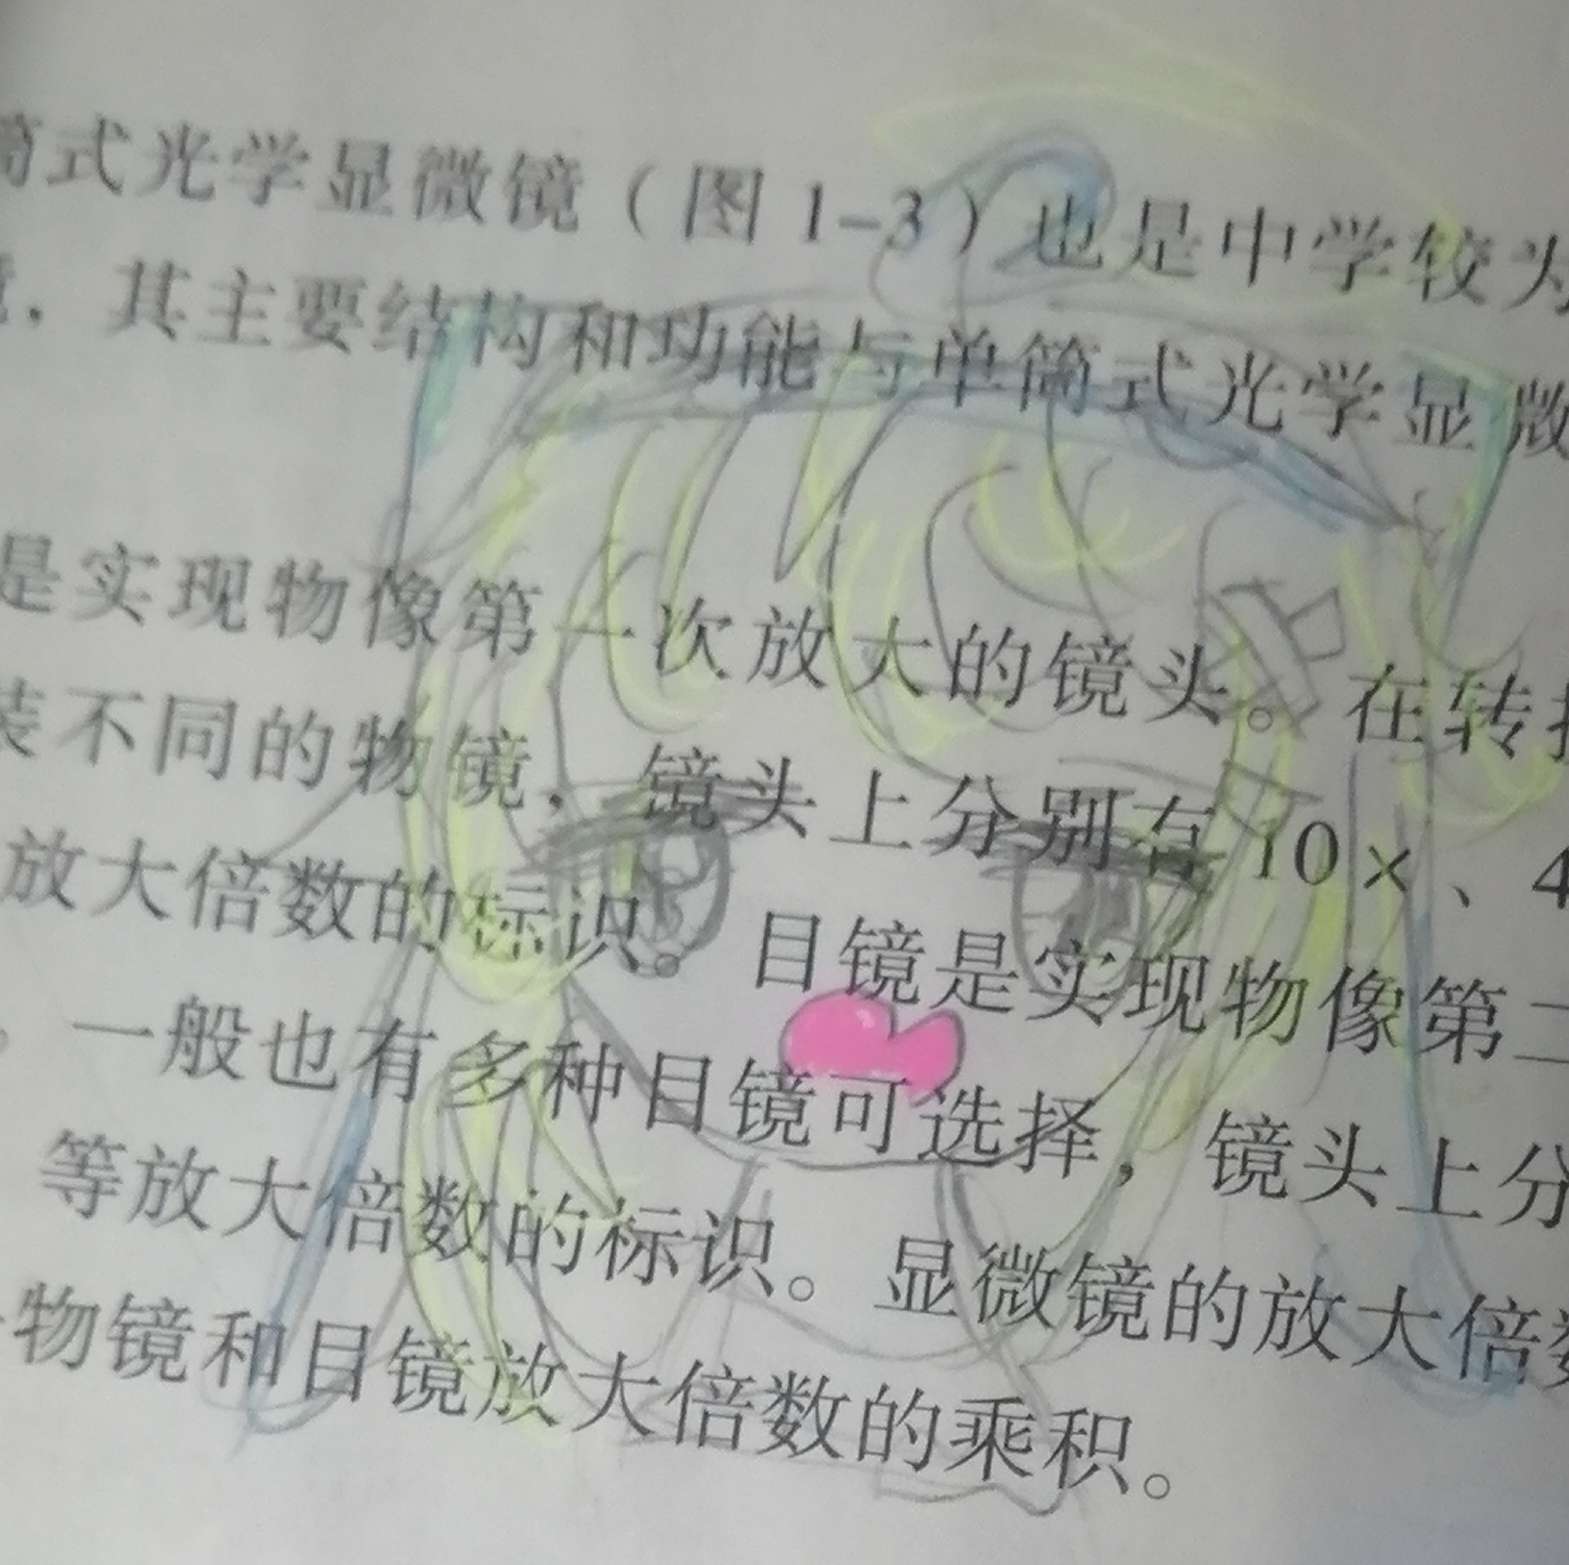 筒式光学显微镜（图 1-3）也是中学较为
，其主要结构和功能与单筒式光学显微
是实现物像第一次放大的镜头。在转
装不同的物镜，镜头上分别有 10×、4
放大倍数的标识。目镜是实现物像第二
一般也有多种目镜可选择，镜头上分
等放大倍数的标识。显微镜的放大倍数
物镜和目镜放大倍数的乘积。